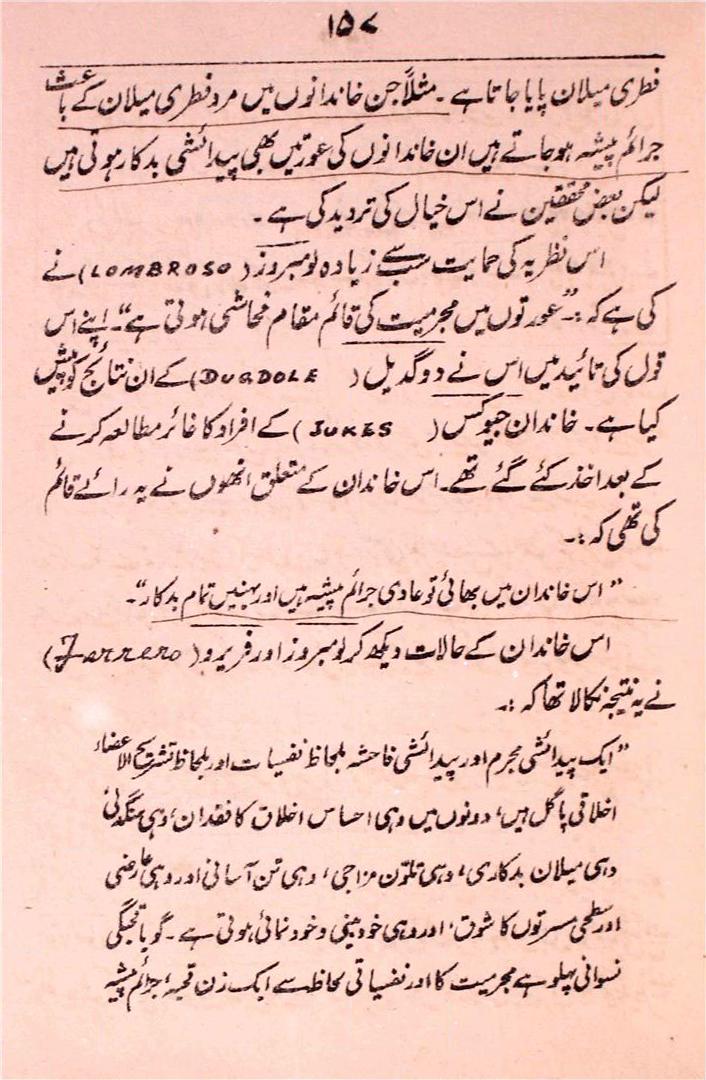 ۱۵۷
فطری میلان پایا جاتا ہے ۔ مثلاً جن خاندانوں میں مرد فطری میلان کے باعث
جرائم پیشہ ہو جاتے ہیں ان خاندانوں کی عورتیں بھی پیدائشی بدکار ہوتی ہیں
لیکن بعض محققین نے اس خیال کی تردید کی ہے ۔
اس نظریہ کی حمایت سب سے زیادہ لومبروز (LOMBROSO) نے
کی ہے کہ :۔ "عورتوں میں مجرمیت کی قائم مقام فحاشی ہوتی ہے"۔ اپنے اس
قول کی تائید میں اس نے دوگدیل (DUGDOLE) کے ان نتائج کو پیش
کیا ہے ۔ خاندان جیوکس (JUKES) کے افراد کا غائر مطالعہ کرنے
کے بعد اخذ کئے گئے تھے ۔ اس خاندان کے متعلق انھوں نے یہ رائے قائم
کی تھی کہ :۔
" اس خاندان میں بھائی تو عادی جرائم پیشہ ہیں اور بہنیں تمام بدکار"۔
اس خاندان کے حالات دیکھ کر لومبروز اور فریرو (Ferrero)
نے یہ نتیجہ نکالا تھا کہ :۔
"ایک پیدائشی مجرم اور پیدائشی فاحشہ بلحاظ نفسیات اور بلحاظ تشریح الاعضاء
اخلاقی پاگل ہیں، دونوں میں وہی احساس اخلاق کا فقدان، وہی سنگدلی
وہی میلان بدکاری، وہی تلوّن مزاجی، وہی تن آسانی اور وہی عارضی
اور سطحی مسرتوں کا شوق، اور وہی خود بینی و خود نمائی ہوتی ہے ۔ گویا قحبگی
نسوانی پہلو ہے مجرمیت کا اور نفسیاتی لحاظ سے ایک زن قحبہ، جرائم پیشہ